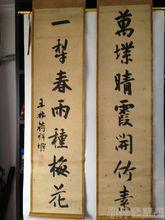 萬墣晴霞開竹素
一犁春雨種梅花